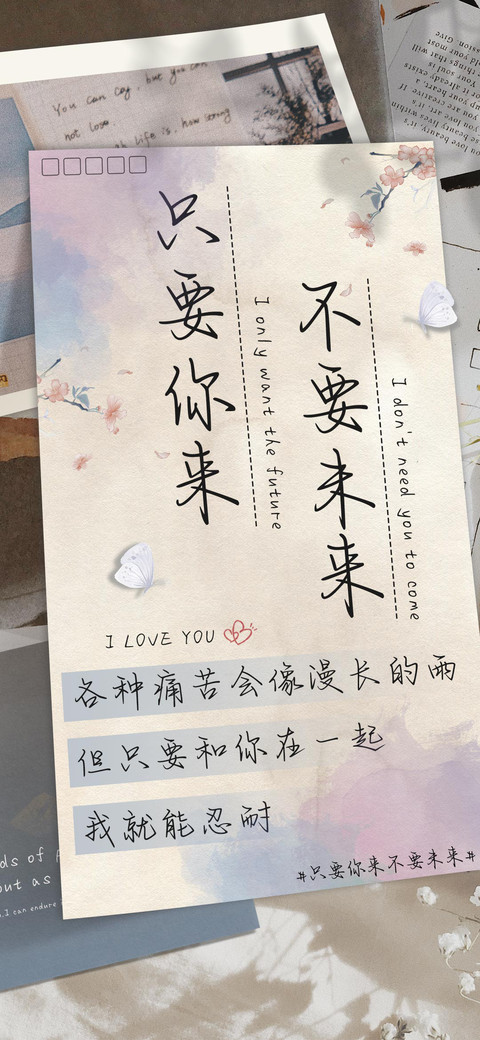 You can cry, but you can
not lose.
life is, how strong
只要你来
I only want the future
不要未来
I don't need you to come
I LOVE YOU
各种痛苦会像漫长的雨
但只要和你在一起
我就能忍耐
#只要你来不要未来#
ds of
out as
I can endure